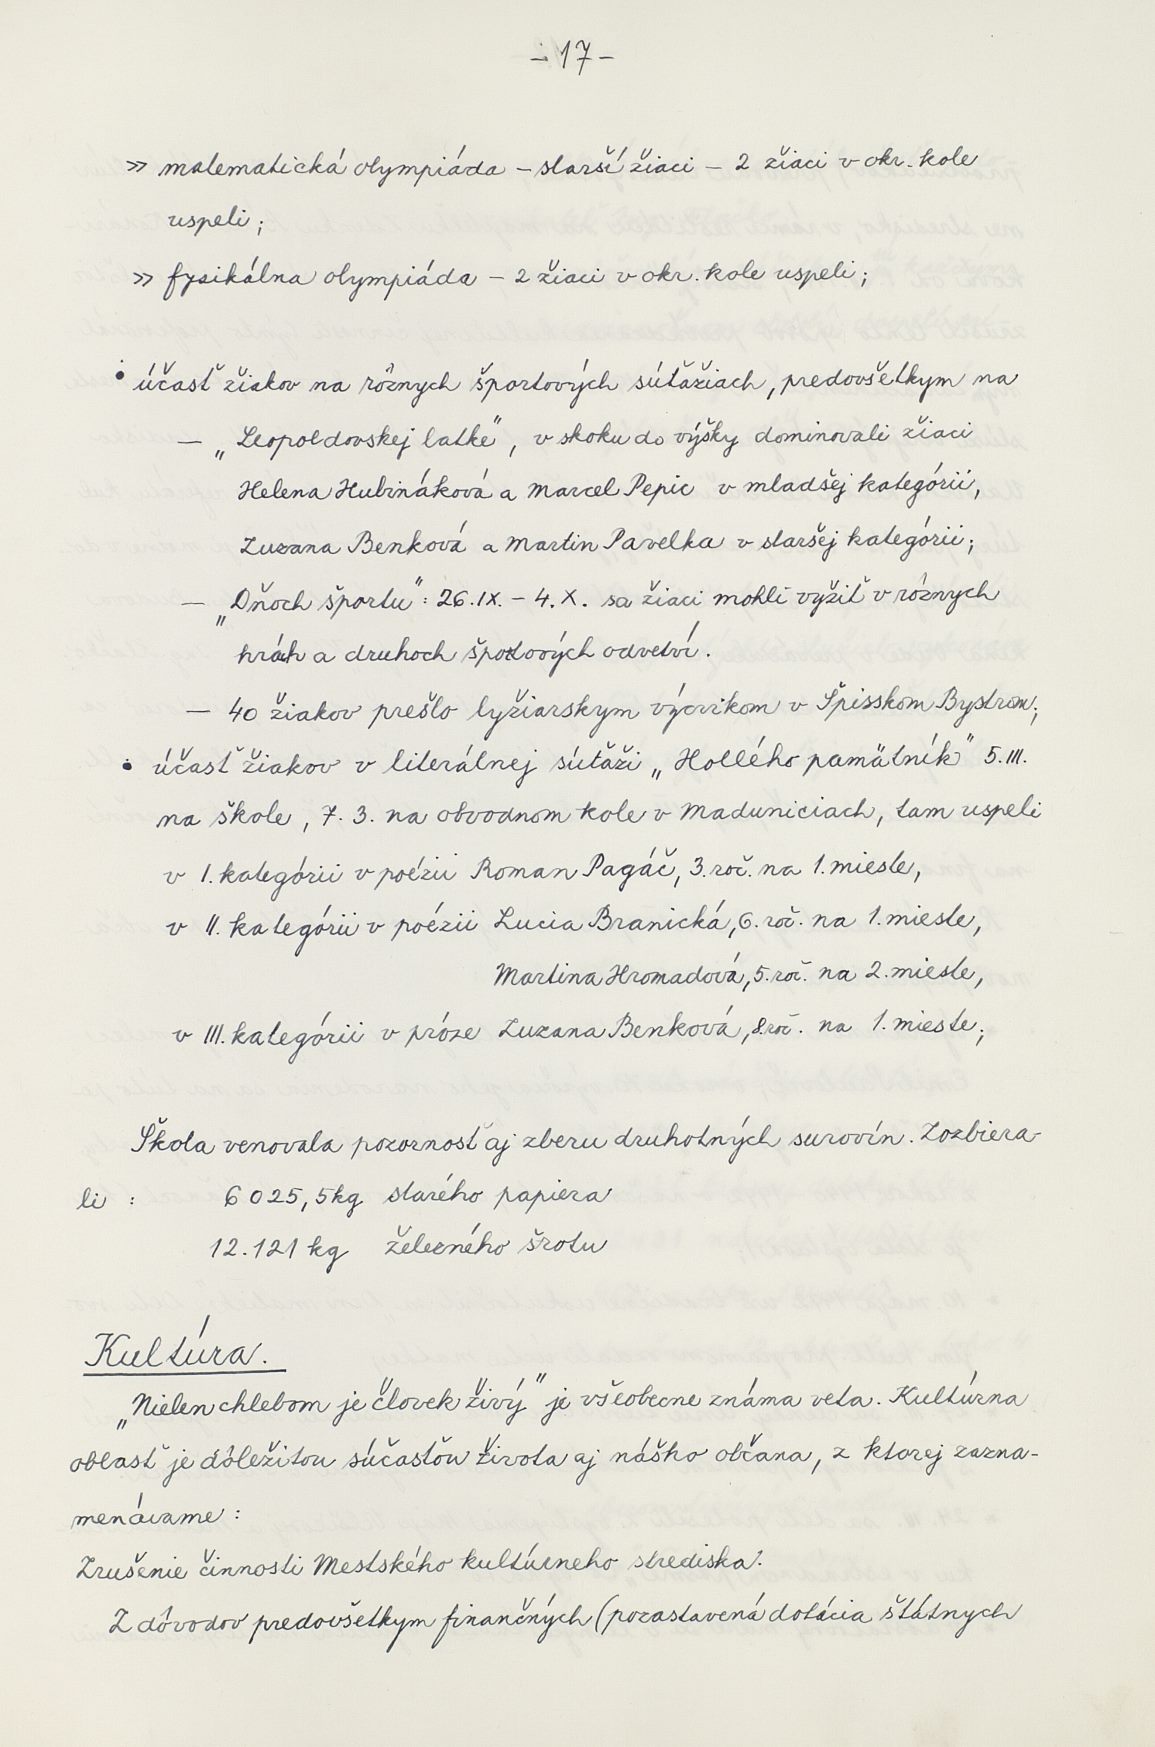 - 17 -
» matematická olympiáda – starší žiaci – 2 žiaci v okr. kole
uspeli;
» fyzikálna olympiáda – 2 žiaci v okr. kole uspeli;
• účasť žiakov na rôznych športových súťažiach, predovšetkým na
– „Leopoldovskej latke", v skoku do výšky dominovali žiaci
Helena Hubináková a Marcel Pepic v mladšej kategórii,
Zuzana Benková a Martin Pavelka v staršej kategórii;
– „Dňoch športu": 26.IX. – 4.X. sa žiaci mohli vyžiť v rôznych
hrách a druhoch športových odvetví.
– 40 žiakov prešlo lyžiarskym výcvikom v Spišskom Bystrom;
• účasť žiakov v literálnej súťaži „Hollého pamätník" 5.III.
na škole, 7. 3. na obvodnom kole v Maduniciach, tam uspeli
v I. kategórii v poézii Roman Pagáč, 3. roč. na 1. mieste,
v II. kategórii v poézii Lucia Branická, 6. roč. na 1. mieste,
Martina Hromadová, 5. roč. na 2. mieste,
v III. kategórii v próze Zuzana Benková, 8. roč. na 1. mieste;
Škola venovala pozornosť aj zberu druhotných surovín. Zozbiera-
li : 6 025,5 kg starého papiera
12.121 kg železného šrotu
Kultúra.
„Nielen chlebom je človek živý" je všeobecne známa veta. Kultúrna
oblasť je dôležitou súčasťou života aj nášho občana, z ktorej zazna-
menávame :
Zrušenie činnosti Mestského kultúrneho strediska.
Z dôvodov predovšetkým finančných (pozastavená dotácia štátnych